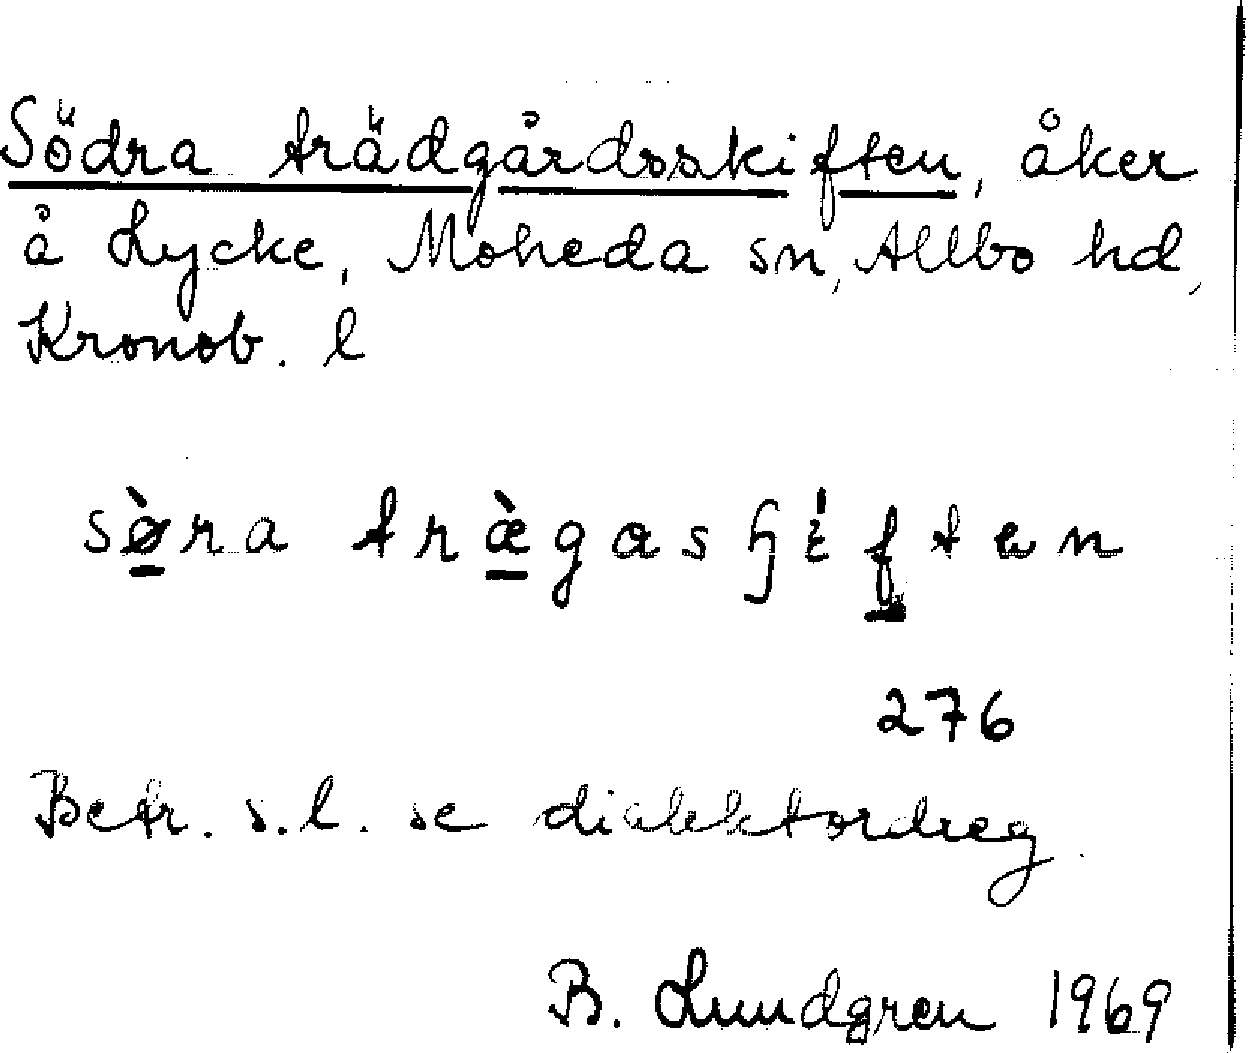 Södra trädgårdsskiften, åker
å Lycke, Moheda sn, Allbo hd,
Kronob. l
276
Betr. s.l. se dialektordreg.
B. Lundgren 1969